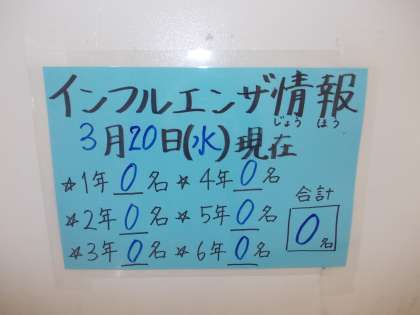 インフルエンザ情報
じょう ほう
3月20日(水)現在
☆1年 0名 ☆4年 0名
☆2年 0名 ☆5年 0名
☆3年 0名 ☆6年 0名
合計
0名